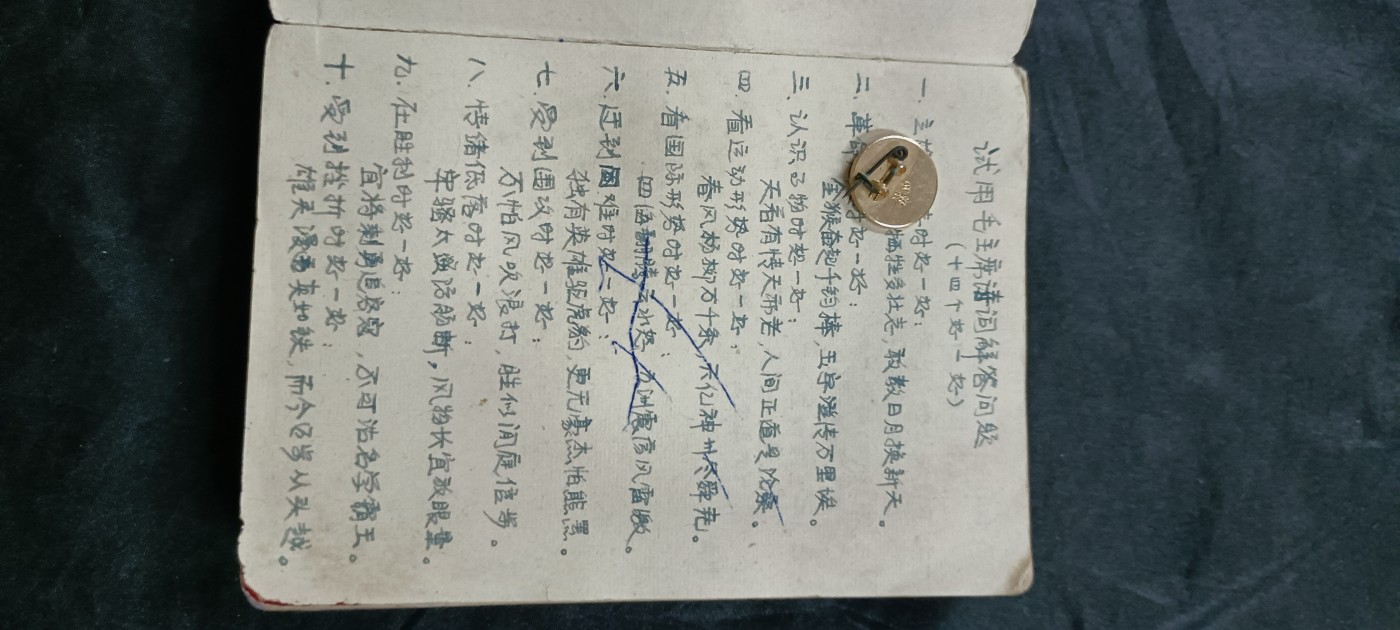 试用毛主席诗词解答问题
(十四个好一好)
一.立 时好一好：
牺牲多壮志，敢教日月换新天。
二.革命 时好一好：
金猴奋起千钧棒，玉宇澄清万里埃。
三.认识事物时好一好：
天若有情天亦老，人间正道是沧桑。
四.看运动形势时好一好：
春风杨柳万千条，六亿神州尽舜尧。
五.看国际形势时好一好：
四海翻腾云水怒，五洲震荡风雷激。
六.迂到困难时好一好：
独有英雄驱虎豹，更无豪杰怕熊罴。
七.受到围攻时好一好：
不怕风吹浪打，胜似闲庭信步。
八.情绪低落时好一好：
牢骚太盛防肠断，风物长宜放眼量。
九.在胜利时好一好：
宜将剩勇追穷寇，不可沽名学霸王。
十.受到挫折时好一好：
雄关漫道真如铁，而今迈步从头越。